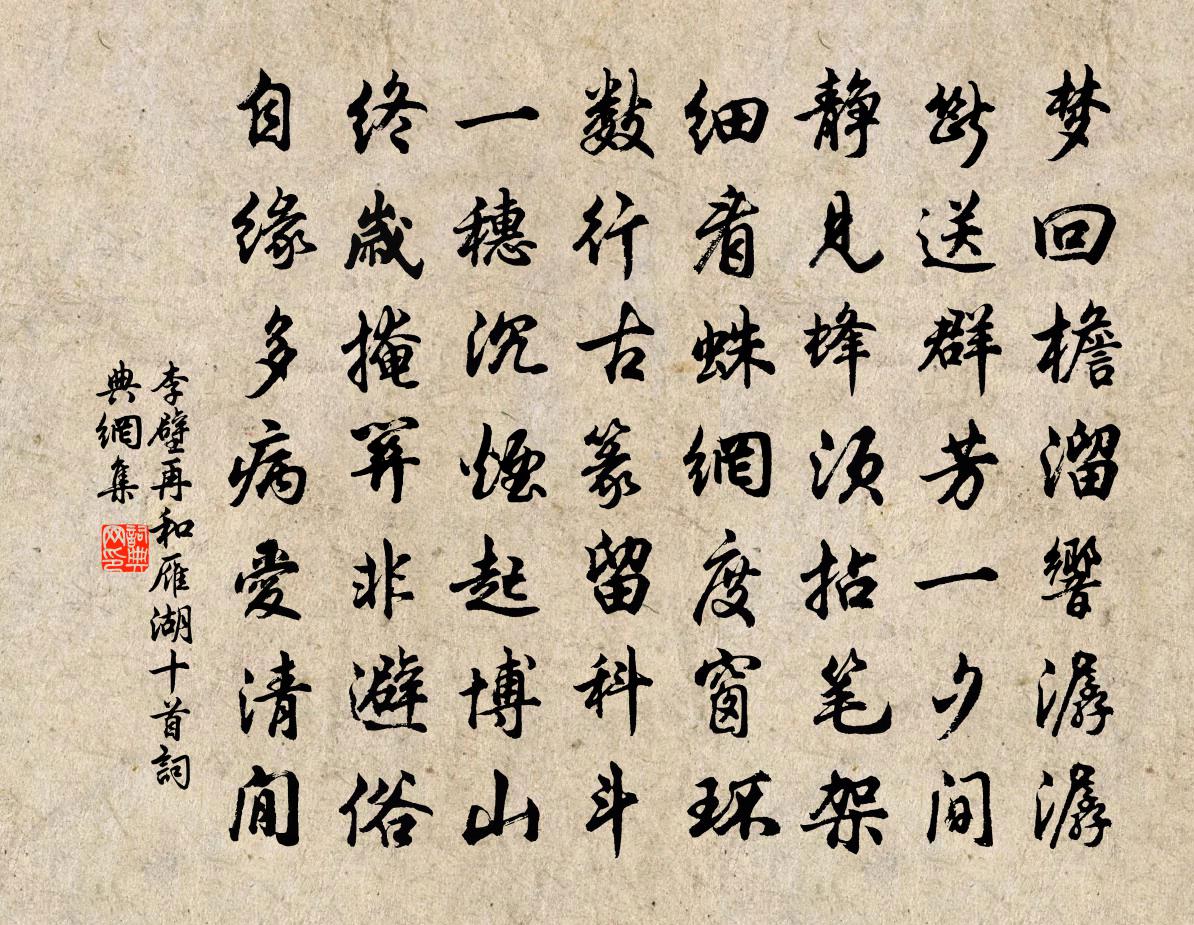 梦回檐溜響潺潺
斷送群芳一夕间
静見蜂须拈笔架
细看蛛網度窗环
数行古篆留科斗
一穗沉煙起博山
终歲掩関非避俗
自缘多病愛清閒
李壁再和雁湖十首詞
典網集
詞典
网印